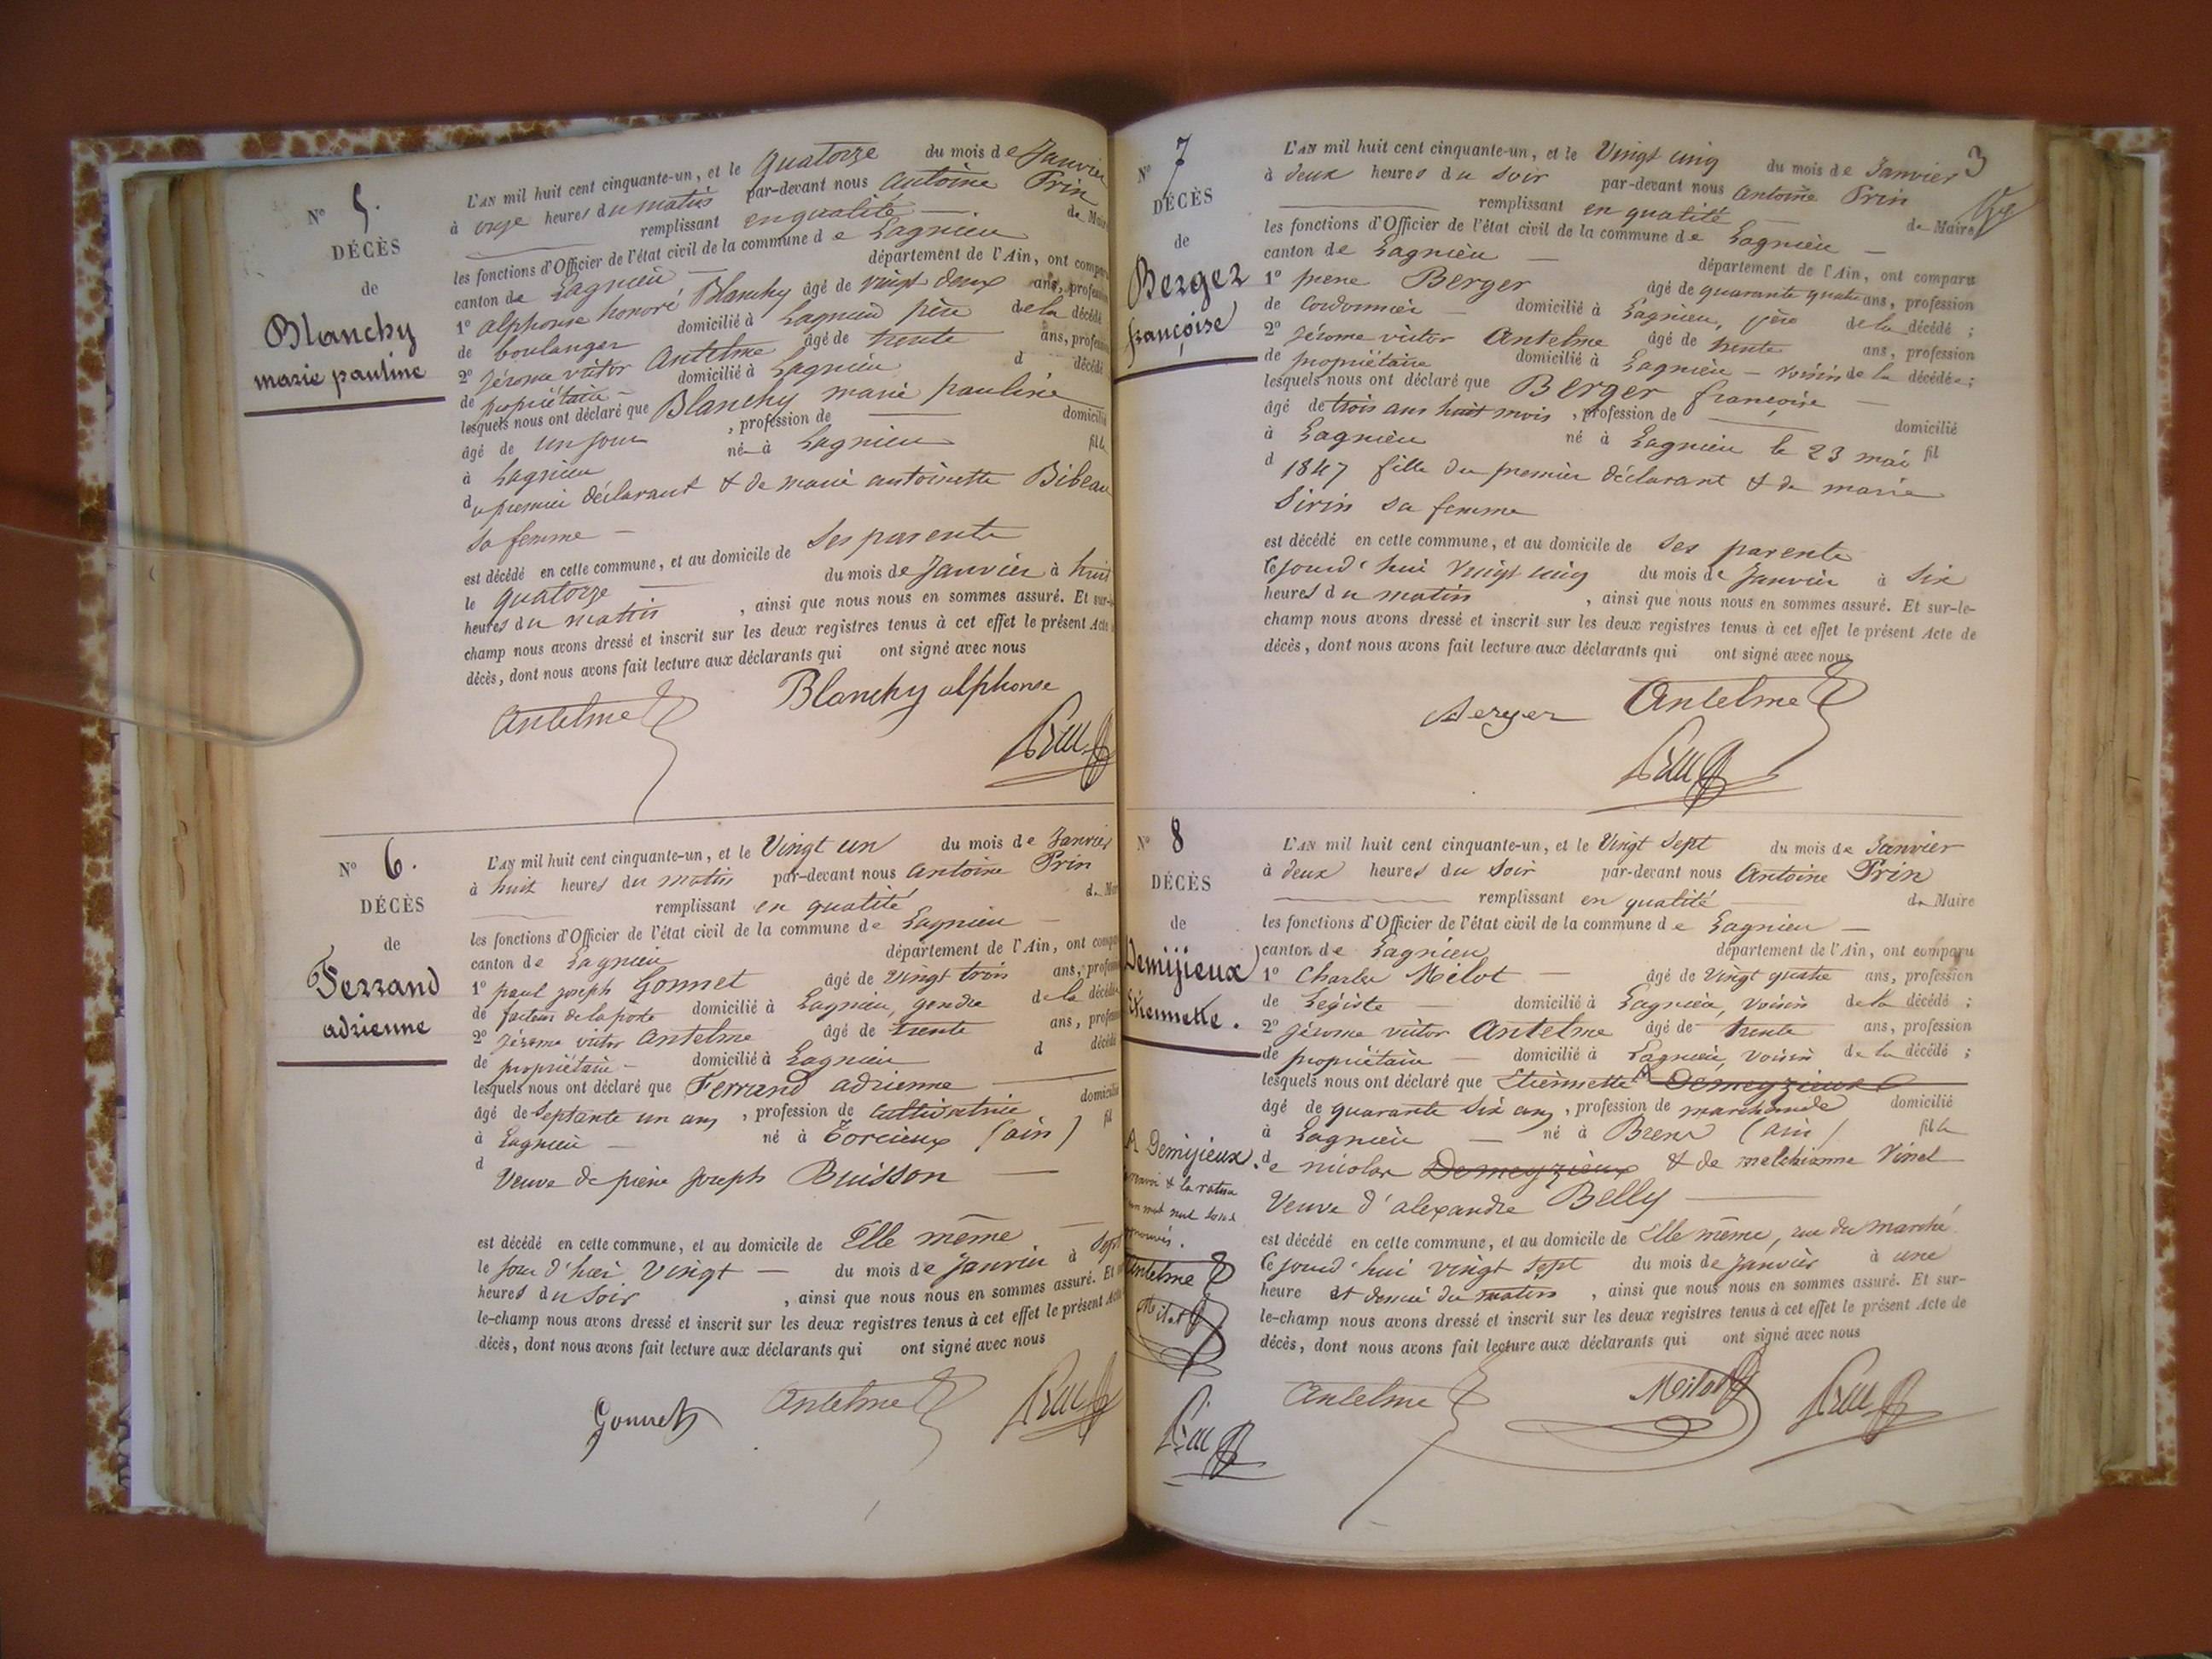 N° 5.
DÉCÈS
de
Blanchy
marie pauline
L'AN mil huit cent cinquante-un, et le quatorze du mois de Janvier
à onze heures du matin par-devant nous Antoine Prin
remplissant en qualité de Maire
les fonctions d'Officier de l'état civil de la commune de Lagnieu
canton de Lagnieu département de l'Ain, ont comparu
1° alphonse honoré Blanchy âgé de vingt deux ans, profession
de boulanger domicilié à Lagnieu père de la décédé
2° Jérome victor Antelme âgé de trente ans, profession
de propriétaire domicilié à Lagnieu d décédé
lesquels nous ont déclaré que Blanchy marie pauline
âgé de un jour, profession de domicilié
à Lagnieu né à Lagnieu fille
du premier déclarant & de marie antoinette Bibeau
sa femme
est décédé en cette commune, et au domicile de ses parents
le quatorze du mois de Janvier à huit
heures du matin, ainsi que nous nous en sommes assuré. Et sur-le-
champ nous avons dressé et inscrit sur les deux registres tenus à cet effet le présent Acte
décès, dont nous avons fait lecture aux déclarants qui ont signé avec nous
Antelme Blanchy alphonse
Prin
N° 6.
DÉCÈS
de
Ferrand
adrienne
L'AN mil huit cent cinquante-un, et le Vingt un du mois de Janvier
à huit heures du matin par-devant nous Antoine Prin
remplissant en qualité de Maire
les fonctions d'Officier de l'état civil de la commune de Lagnieu
canton de Lagnieu département de l'Ain, ont comparu
1° paul joseph Gonnet âgé de vingt trois ans, profession
de facteur de la poste domicilié à Lagnieu, gendre de la décédée
2° Jérome victor Antelme âgé de trente ans, profession
de propriétaire domicilié à Lagnieu d décédé
lesquels nous ont déclaré que Ferrand adrienne
âgé de septante un ans, profession de cultivatrice domicilié
à Lagnieu né à Torcieux (ain) fil
d Veuve de pierre joseph Buisson
est décédé en cette commune, et au domicile de Elle même
le jour d'hier vingt du mois de Janvier à sept
heures du soir, ainsi que nous nous en sommes assuré. Et
le-champ nous avons dressé et inscrit sur les deux registres tenus à cet effet le présent Acte
décès, dont nous avons fait lecture aux déclarants qui ont signé avec nous
Gonnet Antelme Prin
3
N° 7
DÉCÈS
de
Berger
françoise
L'AN mil huit cent cinquante-un, et le Vingt cinq du mois de Janvier
à deux heures du soir par-devant nous Antoine Prin
remplissant en qualité de Maire
les fonctions d'Officier de l'état civil de la commune de Lagnieu
canton de Lagnieu département de l'Ain, ont comparu
1° pierre Berger âgé de quarante quatre ans, profession
de Cordonnier domicilié à Lagnieu, père de la décédé ;
2° Jérome victor Antelme âgé de trente ans, profession
de propriétaire domicilié à Lagnieu - voisin de la décédée ;
lesquels nous ont déclaré que Berger françoise
âgé de trois ans huit mois, profession de domicilié
à Lagnieu né à Lagnieu le 23 mai fil
d 1847 fille du premier déclarant & de marie
Sirin sa femme
est décédé en cette commune, et au domicile de ses parents
Cejourd'hui vingt cinq du mois de Janvier à six
heures du matin, ainsi que nous nous en sommes assuré. Et sur-le-
champ nous avons dressé et inscrit sur les deux registres tenus à cet effet le présent Acte de
décès, dont nous avons fait lecture aux déclarants qui ont signé avec nous
Berger Antelme
Prin
N° 8
DÉCÈS
de
Demijieux
Etiennette.
L'AN mil huit cent cinquante-un, et le Vingt Sept du mois de Janvier
à deux heures du soir par-devant nous Antoine Prin
remplissant en qualité de Maire
les fonctions d'Officier de l'état civil de la commune de Lagnieu
canton de Lagnieu département de l'Ain, ont comparu
1° Charles Milot âgé de vingt quatre ans, profession
de Légiste domicilié à Lagnieu, voisin de la décédé ;
2° Jérome victor Antelme âgé de trente ans, profession
de propriétaire domicilié à Lagnieu, voisin de la décédé ;
lesquels nous ont déclaré que Etiennette A Demeyzieux
âgé de quarante six ans, profession de marchande domicilié
à Lagnieu né à Brens (ain) fille
de nicolas Demeyzieux & de melchionne Vinet
Veuve d'alexandre Belly
est décédé en cette commune, et au domicile de Elle même, rue du marché
Cejourd'hui vingt sept du mois de Janvier à une
heure et demie du matin, ainsi que nous nous en sommes assuré. Et sur-
le-champ nous avons dressé et inscrit sur les deux registres tenus à cet effet le présent Acte de
décès, dont nous avons fait lecture aux déclarants qui ont signé avec nous
Antelme Milot Prin
A Demijieux.
renvoi & la rature
mot nul sont
approuvés.
Antelme
Milot
Prin